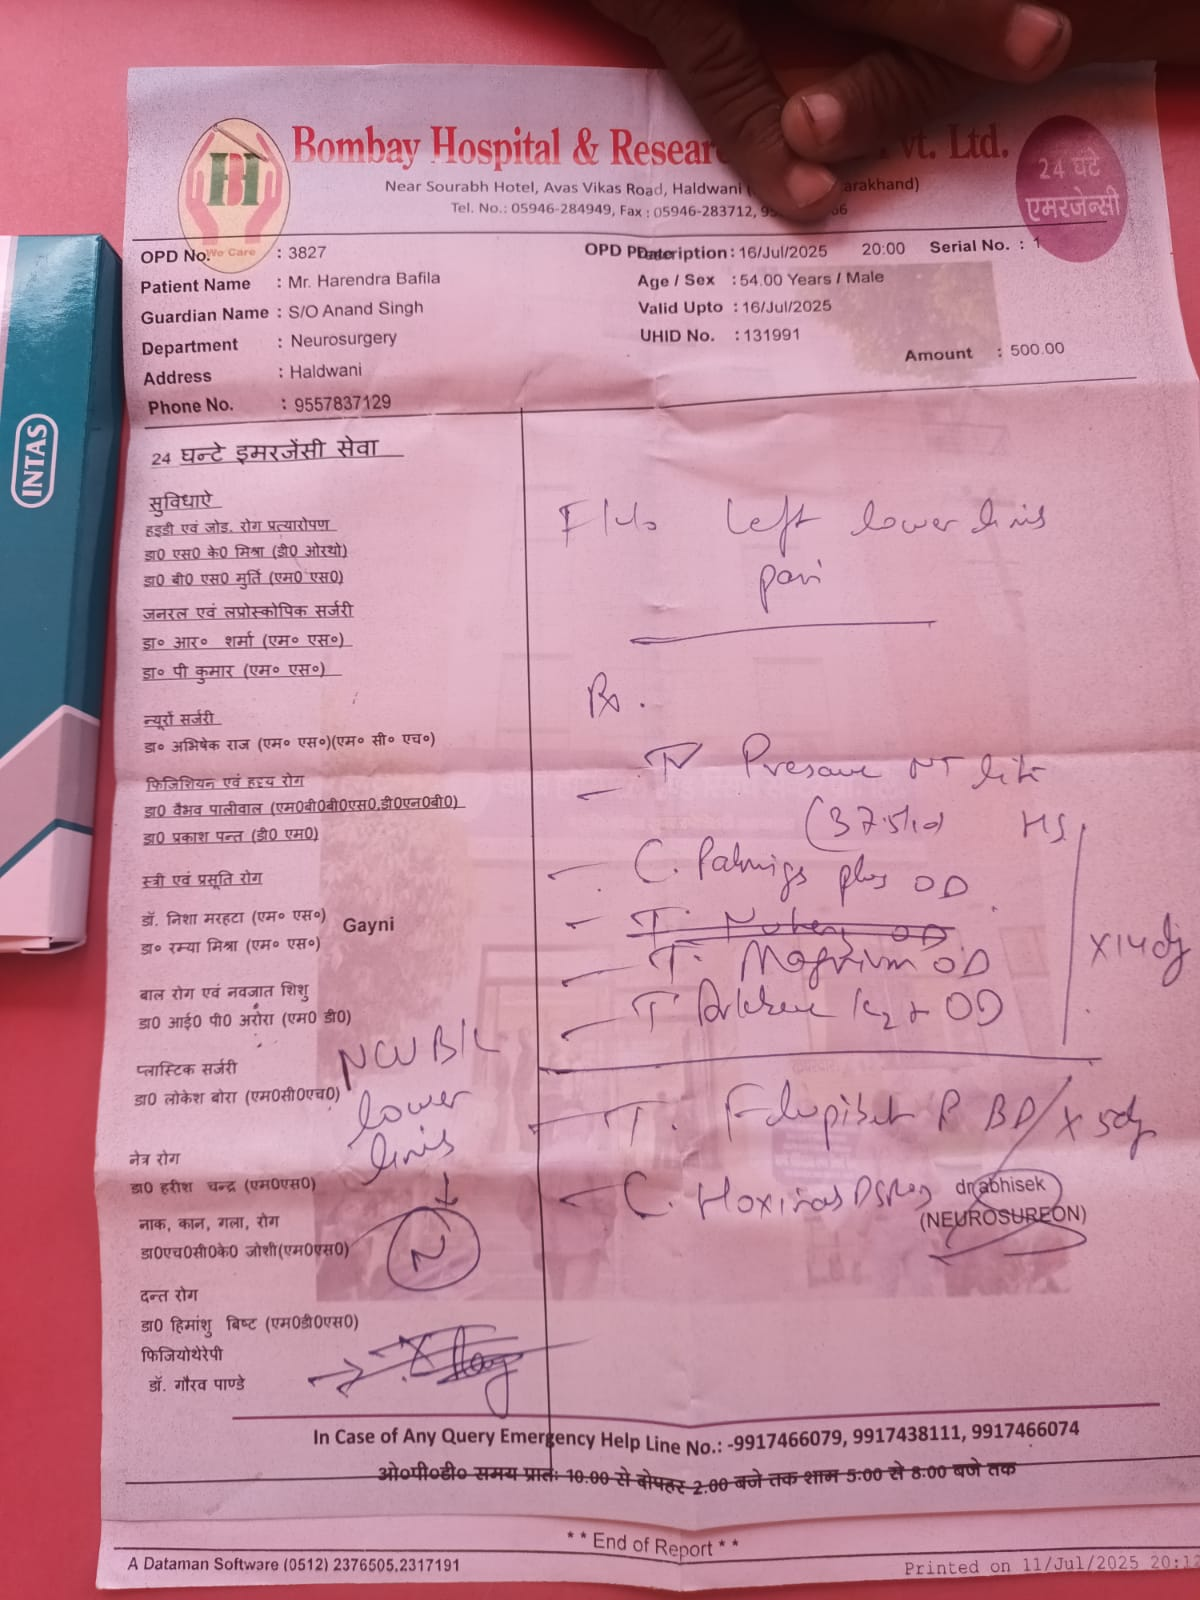 BH
We Care
Bombay Hospital & Resear vt. Ltd.
Near Sourabh Hotel, Avas Vikas Road, Haldwani ( arakhand)
Tel. No.: 05946-284949, Fax : 05946-283712, 95 66
24 घंटे
एमरजेन्सी
INTAS
OPD No. : 3827
Patient Name : Mr. Harendra Bafila
Guardian Name : S/O Anand Singh
Department : Neurosurgery
Address : Haldwani
Phone No. : 9557837129
OPD Date : 16/Jul/2025 20:00 Serial No. : 1
Age / Sex : 54.00 Years / Male
Valid Upto : 16/Jul/2025
UHID No. : 131991
Amount : 500.00
24 घन्टे इमरजेंसी सेवा
सुविधाऐ
हड्डी एवं जोड़. रोग प्रत्यारोपण
डा0 एस0 के0 मिश्रा (डी0 ओरथो)
डा0 बी0 एस0 मुर्ति (एम0 एस0)
जनरल एवं लप्रोस्कोपिक सर्जरी
डा० आर० शर्मा (एम० एस०)
डा० पी कुमार (एम० एस०)
न्यूरों सर्जरी
डा० अभिषेक राज (एम० एस०)(एम० सी० एच०)
फिजिशियन एवं हृदय रोग
डा0 वैभव पालीवाल (एम0बी0बी0एस0,डी0एन0बी0)
डा0 प्रकाश पन्त (डी0 एम0)
स्त्री एवं प्रसूति रोग
डॉ. निशा मरहटा (एम० एस०) Gayni
डा० रम्या मिश्रा (एम० एस०)
बाल रोग एवं नवजात शिशु
डा0 आई0 पी0 अरोरा (एम0 डी0)
प्लास्टिक सर्जरी
डा0 लोकेश बोरा (एम0सी0एच0)
नेत्र रोग
डा0 हरीश चन्द्र (एम0एस0)
नाक, कान, गला, रोग
डा0एच0सी0के0 जोशी(एम0एस0)
दन्त रोग
डा0 हिमांशु बिष्ट (एम0डी0एस0)
फिजियोथेरेपी
डॉ. गौरव पाण्डे
NCV B/L
lower
limb
N
X Ray
Left lower limb
pain
Rx.
NT lite
(37.5/10) HS
C. plus OD
T. OD
T. OD
T K2 + OD
x 14 dj
T. P BD x 5dj
C. DSR
dr abhisek
(NEUROSUREON)
In Case of Any Query Emergency Help Line No.: -9917466079, 9917438111, 9917466074
ओ०पी०डी० समय प्रातः 10.00 से दोपहर 2.00 बजे तक शाम 5:00 से 8:00 बजे तक
** End of Report **
A Dataman Software (0512) 2376505,2317191
Printed on 11/Jul/2025 20:12